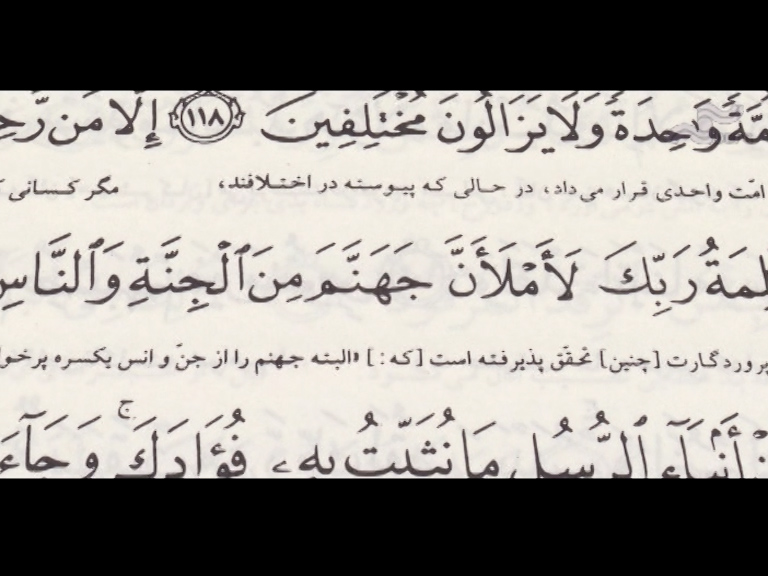 مَّةً وَٰحِدَةً وَلَا يَزَالُونَ مُخْتَلِفِينَ ١١٨ إِلَّا مَن رَّحِ
امّت واحدی قرار می‌داد، در حالی که پیوسته در اختلافند، مگر کسانی ک
لِمَةُ رَبِّكَ لَأَمْلَأَنَّ جَهَنَّمَ مِنَ ٱلْجِنَّةِ وَٱلنَّاسِ
پروردگارت [چنین] تحقّق پذیرفته است [که:] «البته جهنم را از جنّ و انس یکسره پرخوا
نْ أَنۢبَآءِ ٱلرُّسُلِ مَا نُثَبِّتُ بِهِۦ فُؤَادَكَ ۚ وَجَآءَ